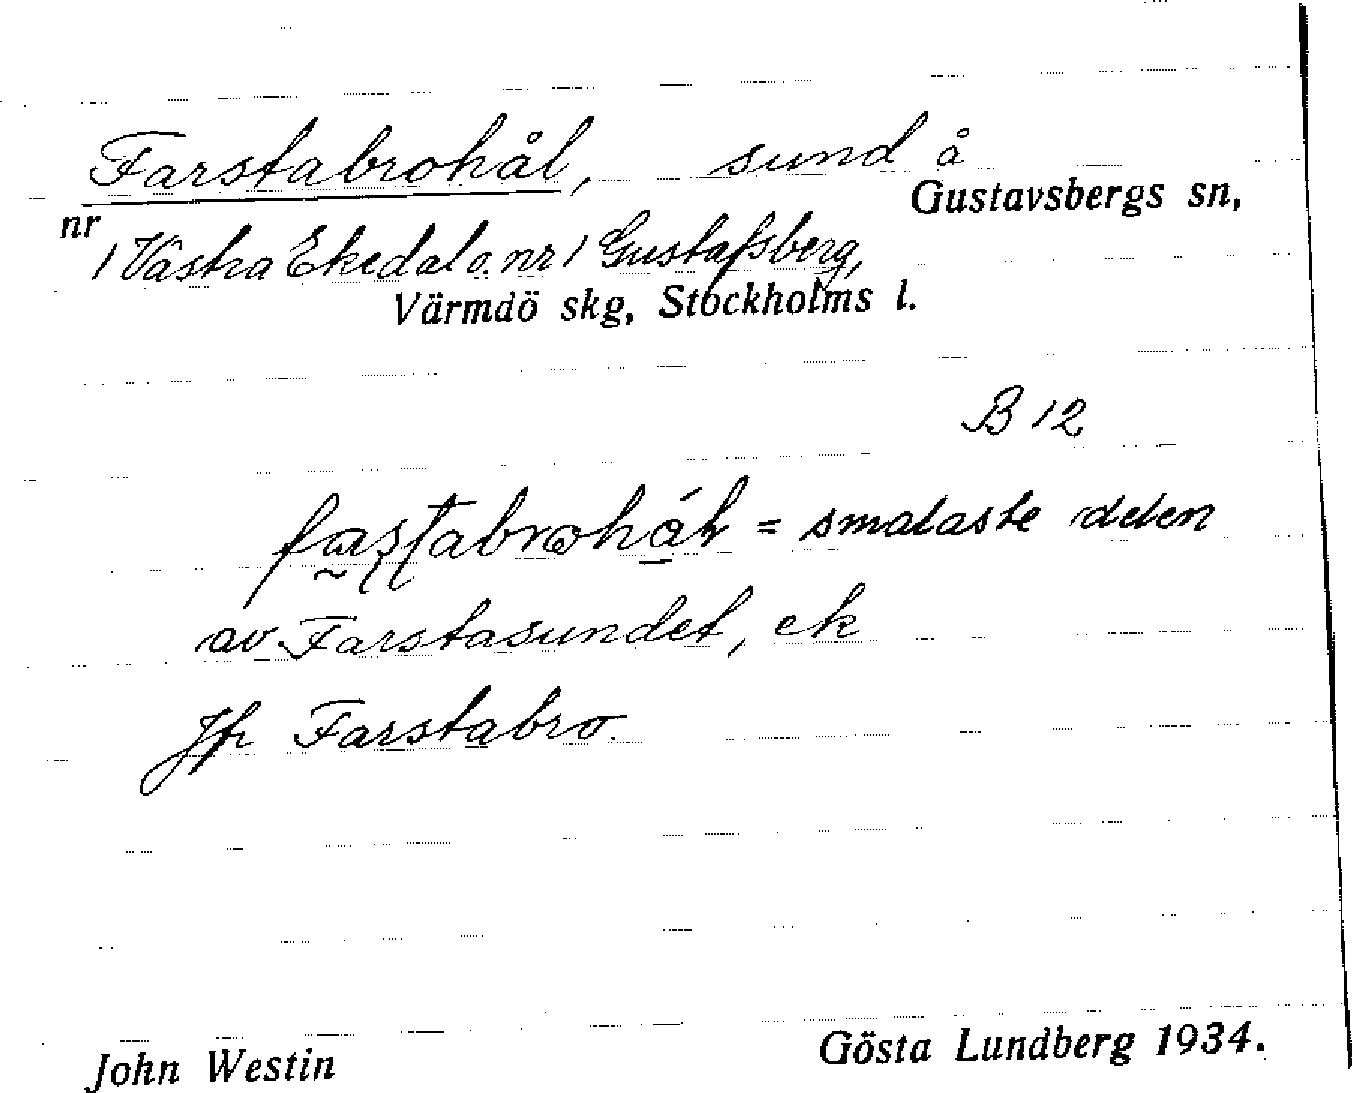 Farstabrohål, sund å
Gustavsbergs sn,
nr
1 Västra Ekedal o. nr 1 Gustafsberg,
Värmdö skg, Stockholms l.
B 12
= smalaste delen
av Farstasundet, ek
Jfr Farstabro.
John Westin
Gösta Lundberg 1934.